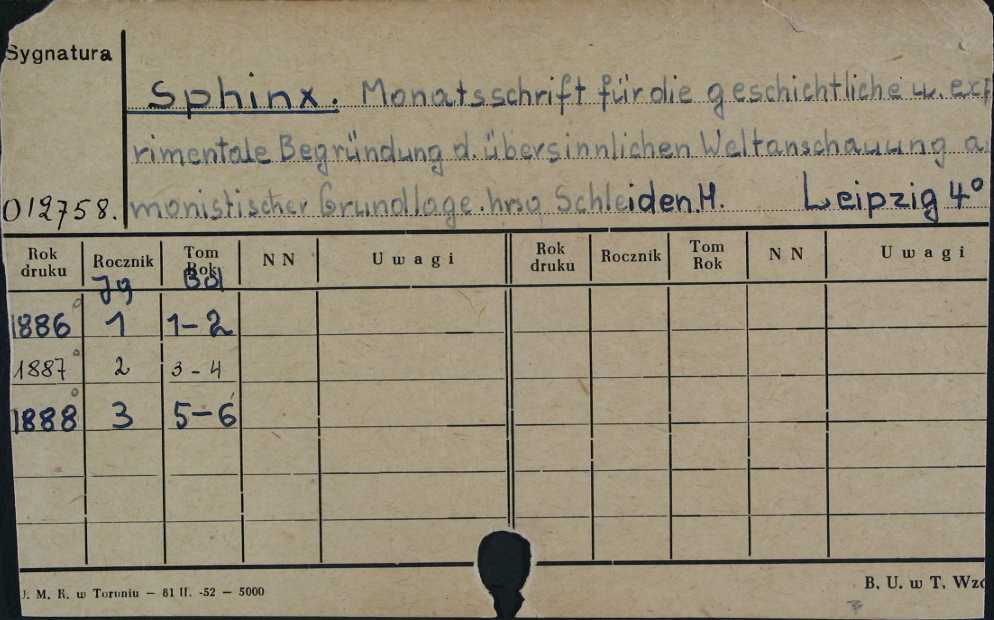 Sygnatura
Sphinx. Monatsschrift für die geschichtliche u. exp
rimentale Begründung d. übersinnlichen Weltanschauung a
012758. monistischer Grundlage. hrsg Schleiden. H. Leipzig 4°
Rok druku Rocznik Tom Rok N N Uwagi Rok druku Rocznik Tom Rok N N Uwagi
Jg Bd
1886° 1 1-2
1887° 2 3-4
1888° 3 5-6
U. M. K. w Toruniu — 81 II. -52 — 5000
B. U. w T. Wzó